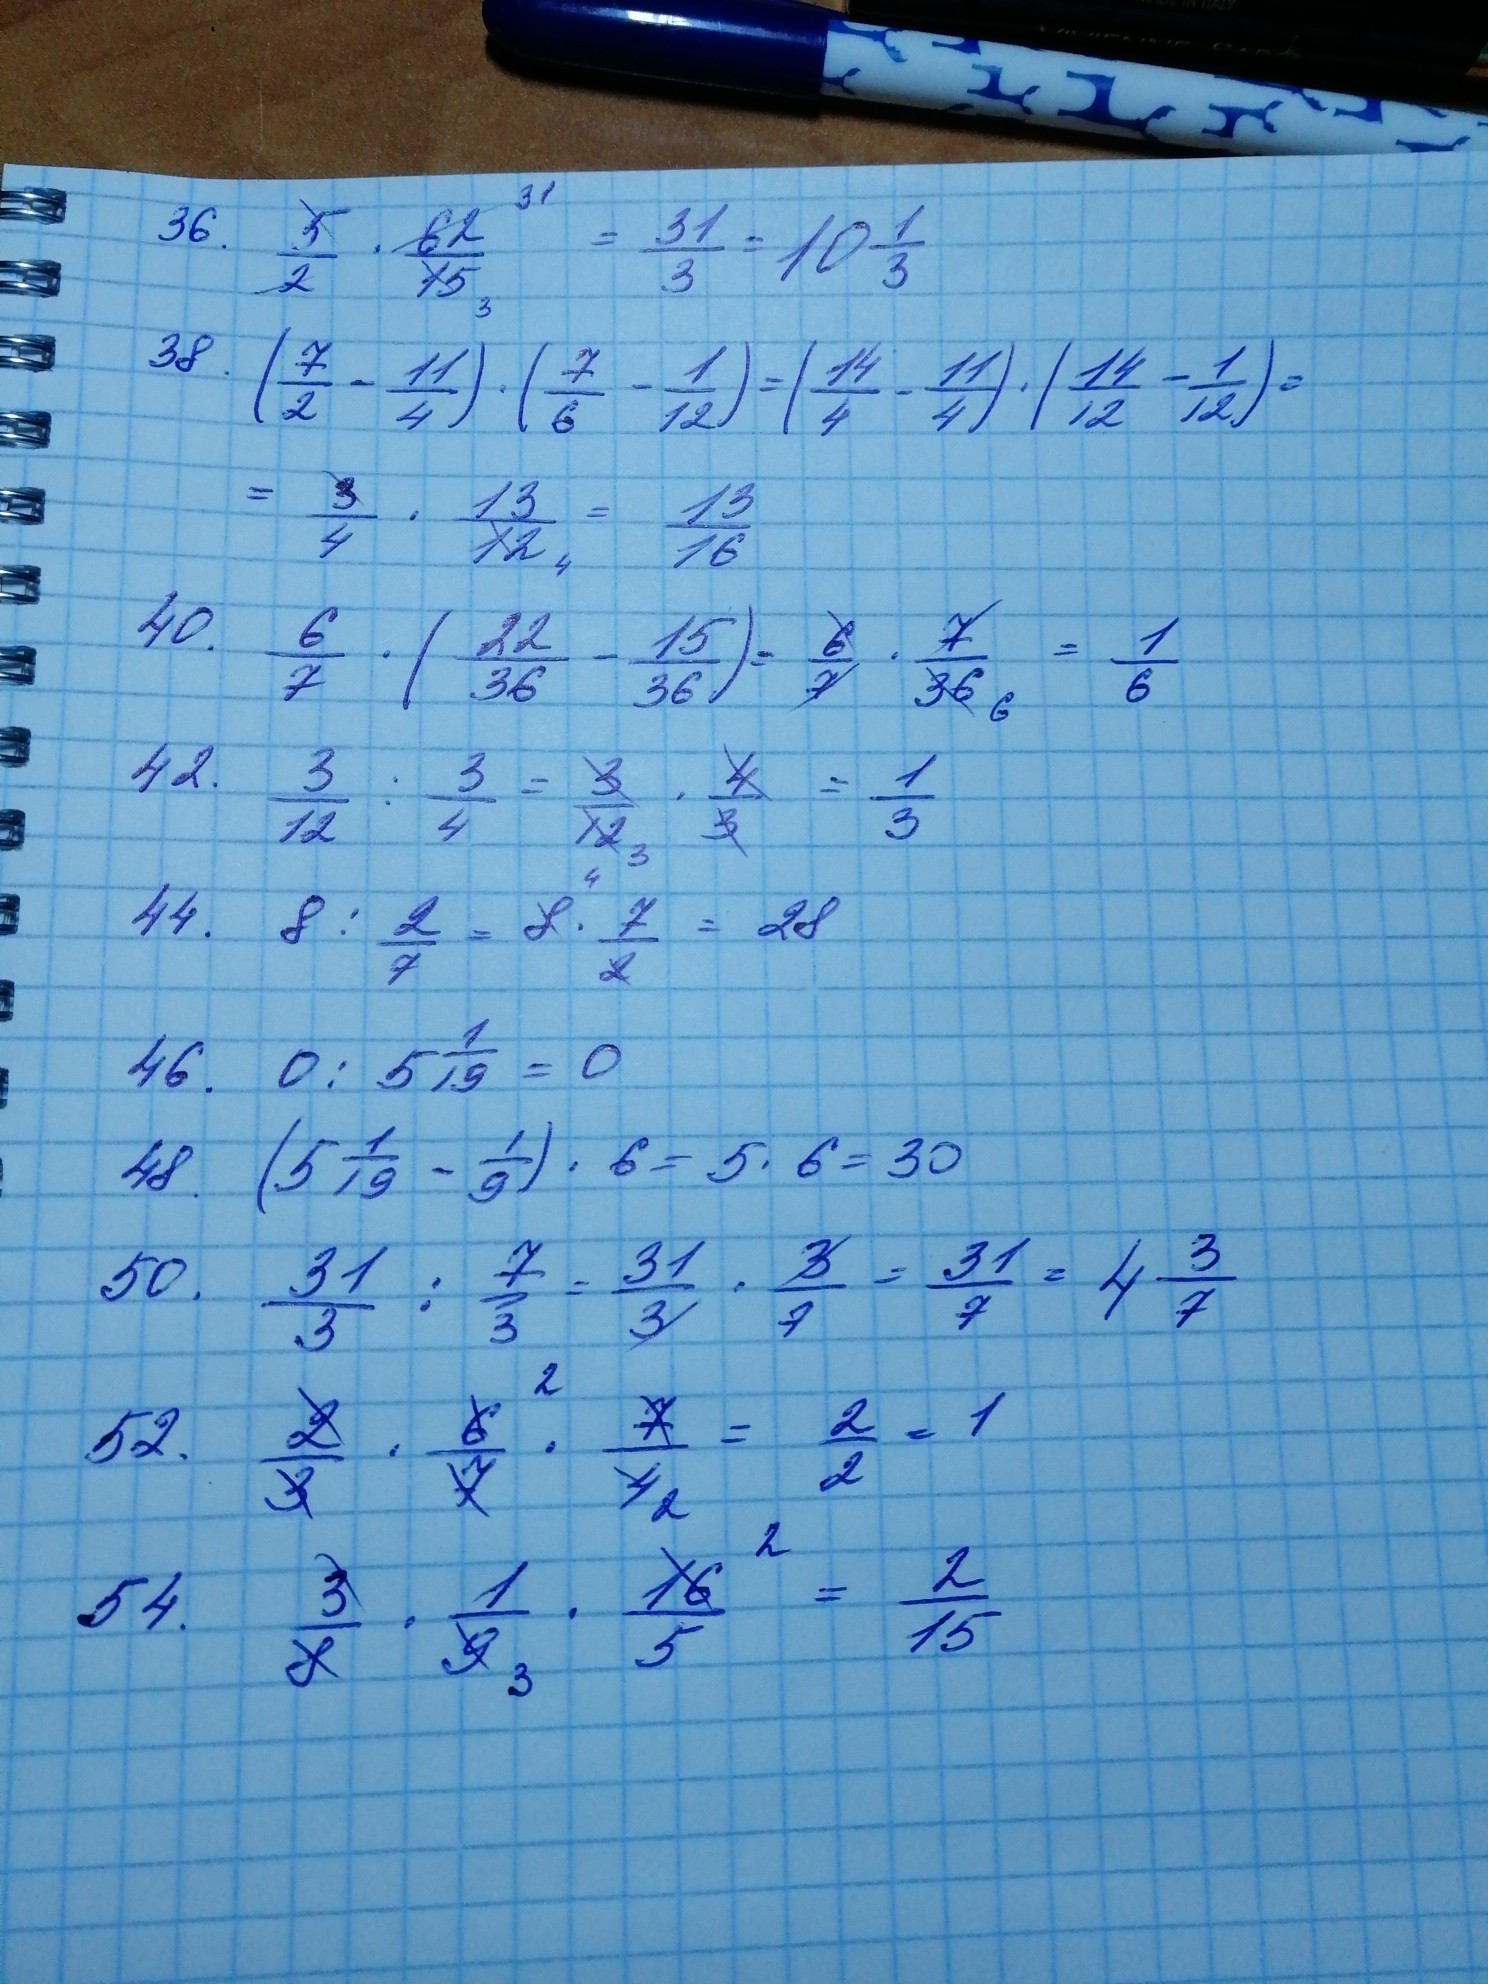 MADE IN ITALY
36. 5/2 · 62/15 31 3 = 31/3 = 10 1/3
38. (7/2 - 11/4) · (7/6 - 1/12) = (14/4 - 11/4) · (14/12 - 1/12) =
= 3/4 · 13/12 4 = 13/16
40. 6/7 · (22/36 - 15/36) = 6/7 · 7/36 6 = 1/6
42. 3/12 : 3/4 = 3/12 3 · 4/3 = 1/3
44. 8 : 2/7 = 8 4 · 7/2 = 28
46. 0 : 5 1/19 = 0
48. (5 1/19 - 1/9) · 6 = 5 · 6 = 30
50. 31/3 : 7/3 = 31/3 · 3/7 = 31/7 = 4 3/7
52. 2/3 · 6/7 2 · 7/4 2 = 2/2 = 1
54. 3/8 · 1/9 3 · 16/5 2 = 2/15